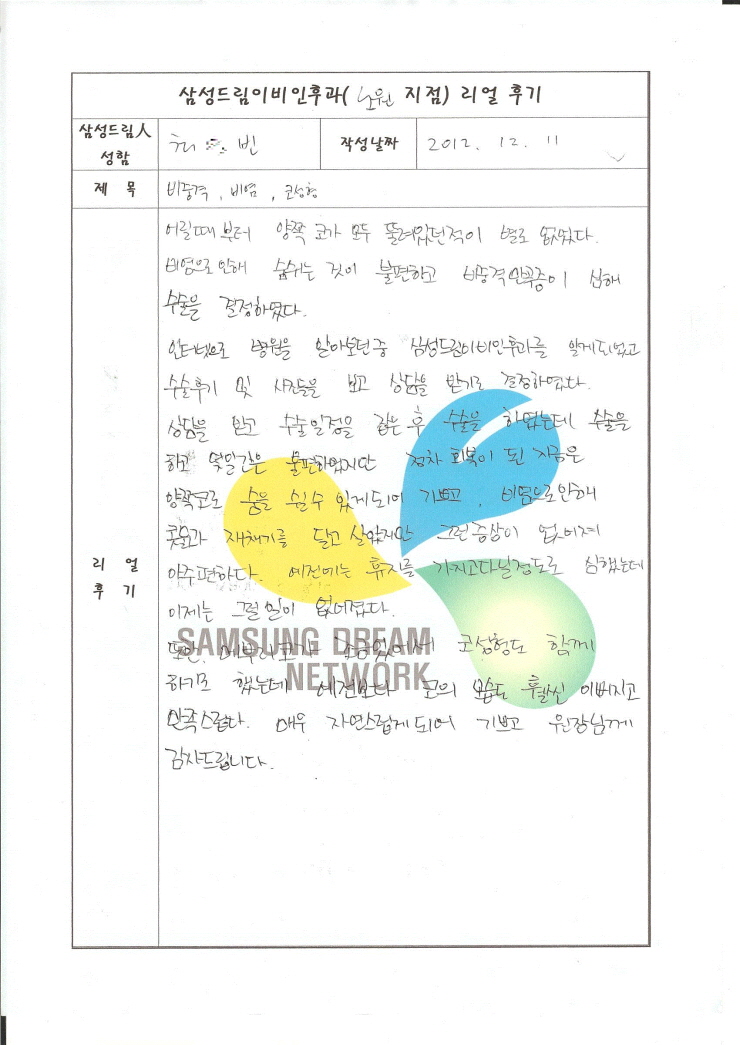 삼성드림이비인후과(노원 지점) 리얼 후기
삼성드림人
성함
빈
작성날짜
2012. 12. 11
제 목
비중격, 비염, 코성형
리 얼
후 기
어릴때 부터 양쪽 코가 모두 뚫려있던적이 별로 없었다.
비염으로 인해 숨쉬는 것이 불편하고 비중격만곡증이 심해
수술을 결정하였다.
인터넷으로 병원을 알아보던중 삼성드림이비인후과를 알게되었고
수술후기 및 사진들을 보고 상담을 받기로 결정하였다.
상담을 받고 수술일정을 잡은 후 수술을 하였는데 수술을
하고 몇일간은 불편하였지만 점차 회복이 된 지금은
양쪽코로 숨을 쉴수 있게되어 기쁘고, 비염으로인해
콧물과 재채기를 달고 살았지만 그런증상이 없어져
아주편하다. 예전에는 휴지를 가지고다닐정도로 심했는데
이제는 그럴일이 없어졌다.
또한, 매부리코가 조금있어서 코성형도 함께
하기로 했는데 예전보다 코의 모습도 훨씬 이뻐지고
만족스럽다. 매우 자연스럽게되어 기쁘고 원장님께
감사드립니다.
SAMSUNG DREAM
NETWORK